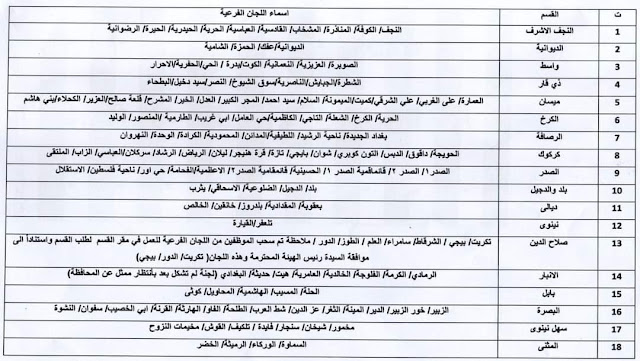 ت القسم اسماء اللجان الفرعية
1 النجف الاشرف النجف/ الكوفة/ المناذرة/ المشخاب/ القادسية/ العباسية/ الحرية/ الحيدرية/ الحيرة/ الرضوانية
2 الديوانية الديوانية/عفك/ الحمزة/ الشامية
3 واسط الصويرة/ العزيزية/ النعمانية/ الكوت/بدرة / الحي/الحفرية/الاحرار
4 ذي قار الشطرة/الجبايش/الناصرية/سوق الشيوخ/ النصر/سيد دخيل/البطحاء
5 ميسان العمارة/ على الغربي/ علي الشرقي/كميت/الميمونة/ السلام/ سيد احمد/ المجر الكبير/ العدل/ الخير/ المشرح/ قلعة صالح/العزير/ الكحلاء/بني هاشم
6 الكرخ الحرية/ الكرخ/ الشعلة/ التاجي/ الكاظمية/حي العامل/ ابي غريب/ الطارمية /المنصور/ الوليد
7 الرصافة بغداد الجديدة/ ناحية الرشيد/ اللطيفية/المدائن/ المحمودية/ الكرادة/ الوحدة/ النهروان
8 كركوك الحويجة/ داقوق/ الدبس/ التون كوبري/ شوان/ يايجي/ تازة/ قرة هنجير/ ليلان/ الرياض/ الرشاد/ سركلان/العباسي/ الزاب/ الملتقى
9 الصدر الصدر١/ الصدر ٢/ قائمقامية الصدر ١/ الحسينية/ قائمقامية الصدر٢/ الاعظمية/الفحامة/ حي اور/ ناحية فلسطين/ الاستقلال
10 بلد والدجيل بلد/ الدجيل/ الضلوعية/ الاسحاقي/ يثرب
11 ديالى بعقوبة/ المقدادية/ بلدروز/ خانقين/ الخالص
12 نينوى تلعفر/القيارة
13 صلاح الدين تكريت/ بيجي / الشرقاط/ سامراء/ العلم / الطوز/ الدور / ملاحظة تم سحب الموظفين من اللجان الفرعية للعمل في مقر القسم لطلب القسم واستناداً الى
موافقة السيدة رئيس الهيئة المحترمة وهذه اللجان( تكريت/ الدور/ بيجي)
14 الانبار الرمادي/ الكرمة/ الفلوجة/ الخالدية/ العامرية/ هيت/ حديثة/ البغدادي (لجنة لم تشكل بعد بأنتظار ممثل عن المحافظة)
15 بابل الحلة/ المسيب/ الهاشمية/ المحاويل/ كوثى
16 البصرة الزبير/ خور الزبير/ الدير/ المدينة/ الثغر/ عز الدين/ شط العرب/ الطلحة/ الفاو/ الهارثة/ القرنة/ ابي الخصيب/ سفوان/ النشوة
17 سهل نينوى مخمور/ شيخان/ سنجار/ فايدة / تلكيف/ القوش/ مخيمات النزوح
18 المثنى السماوة/ الوركاء/ الرميثة/ الخضر